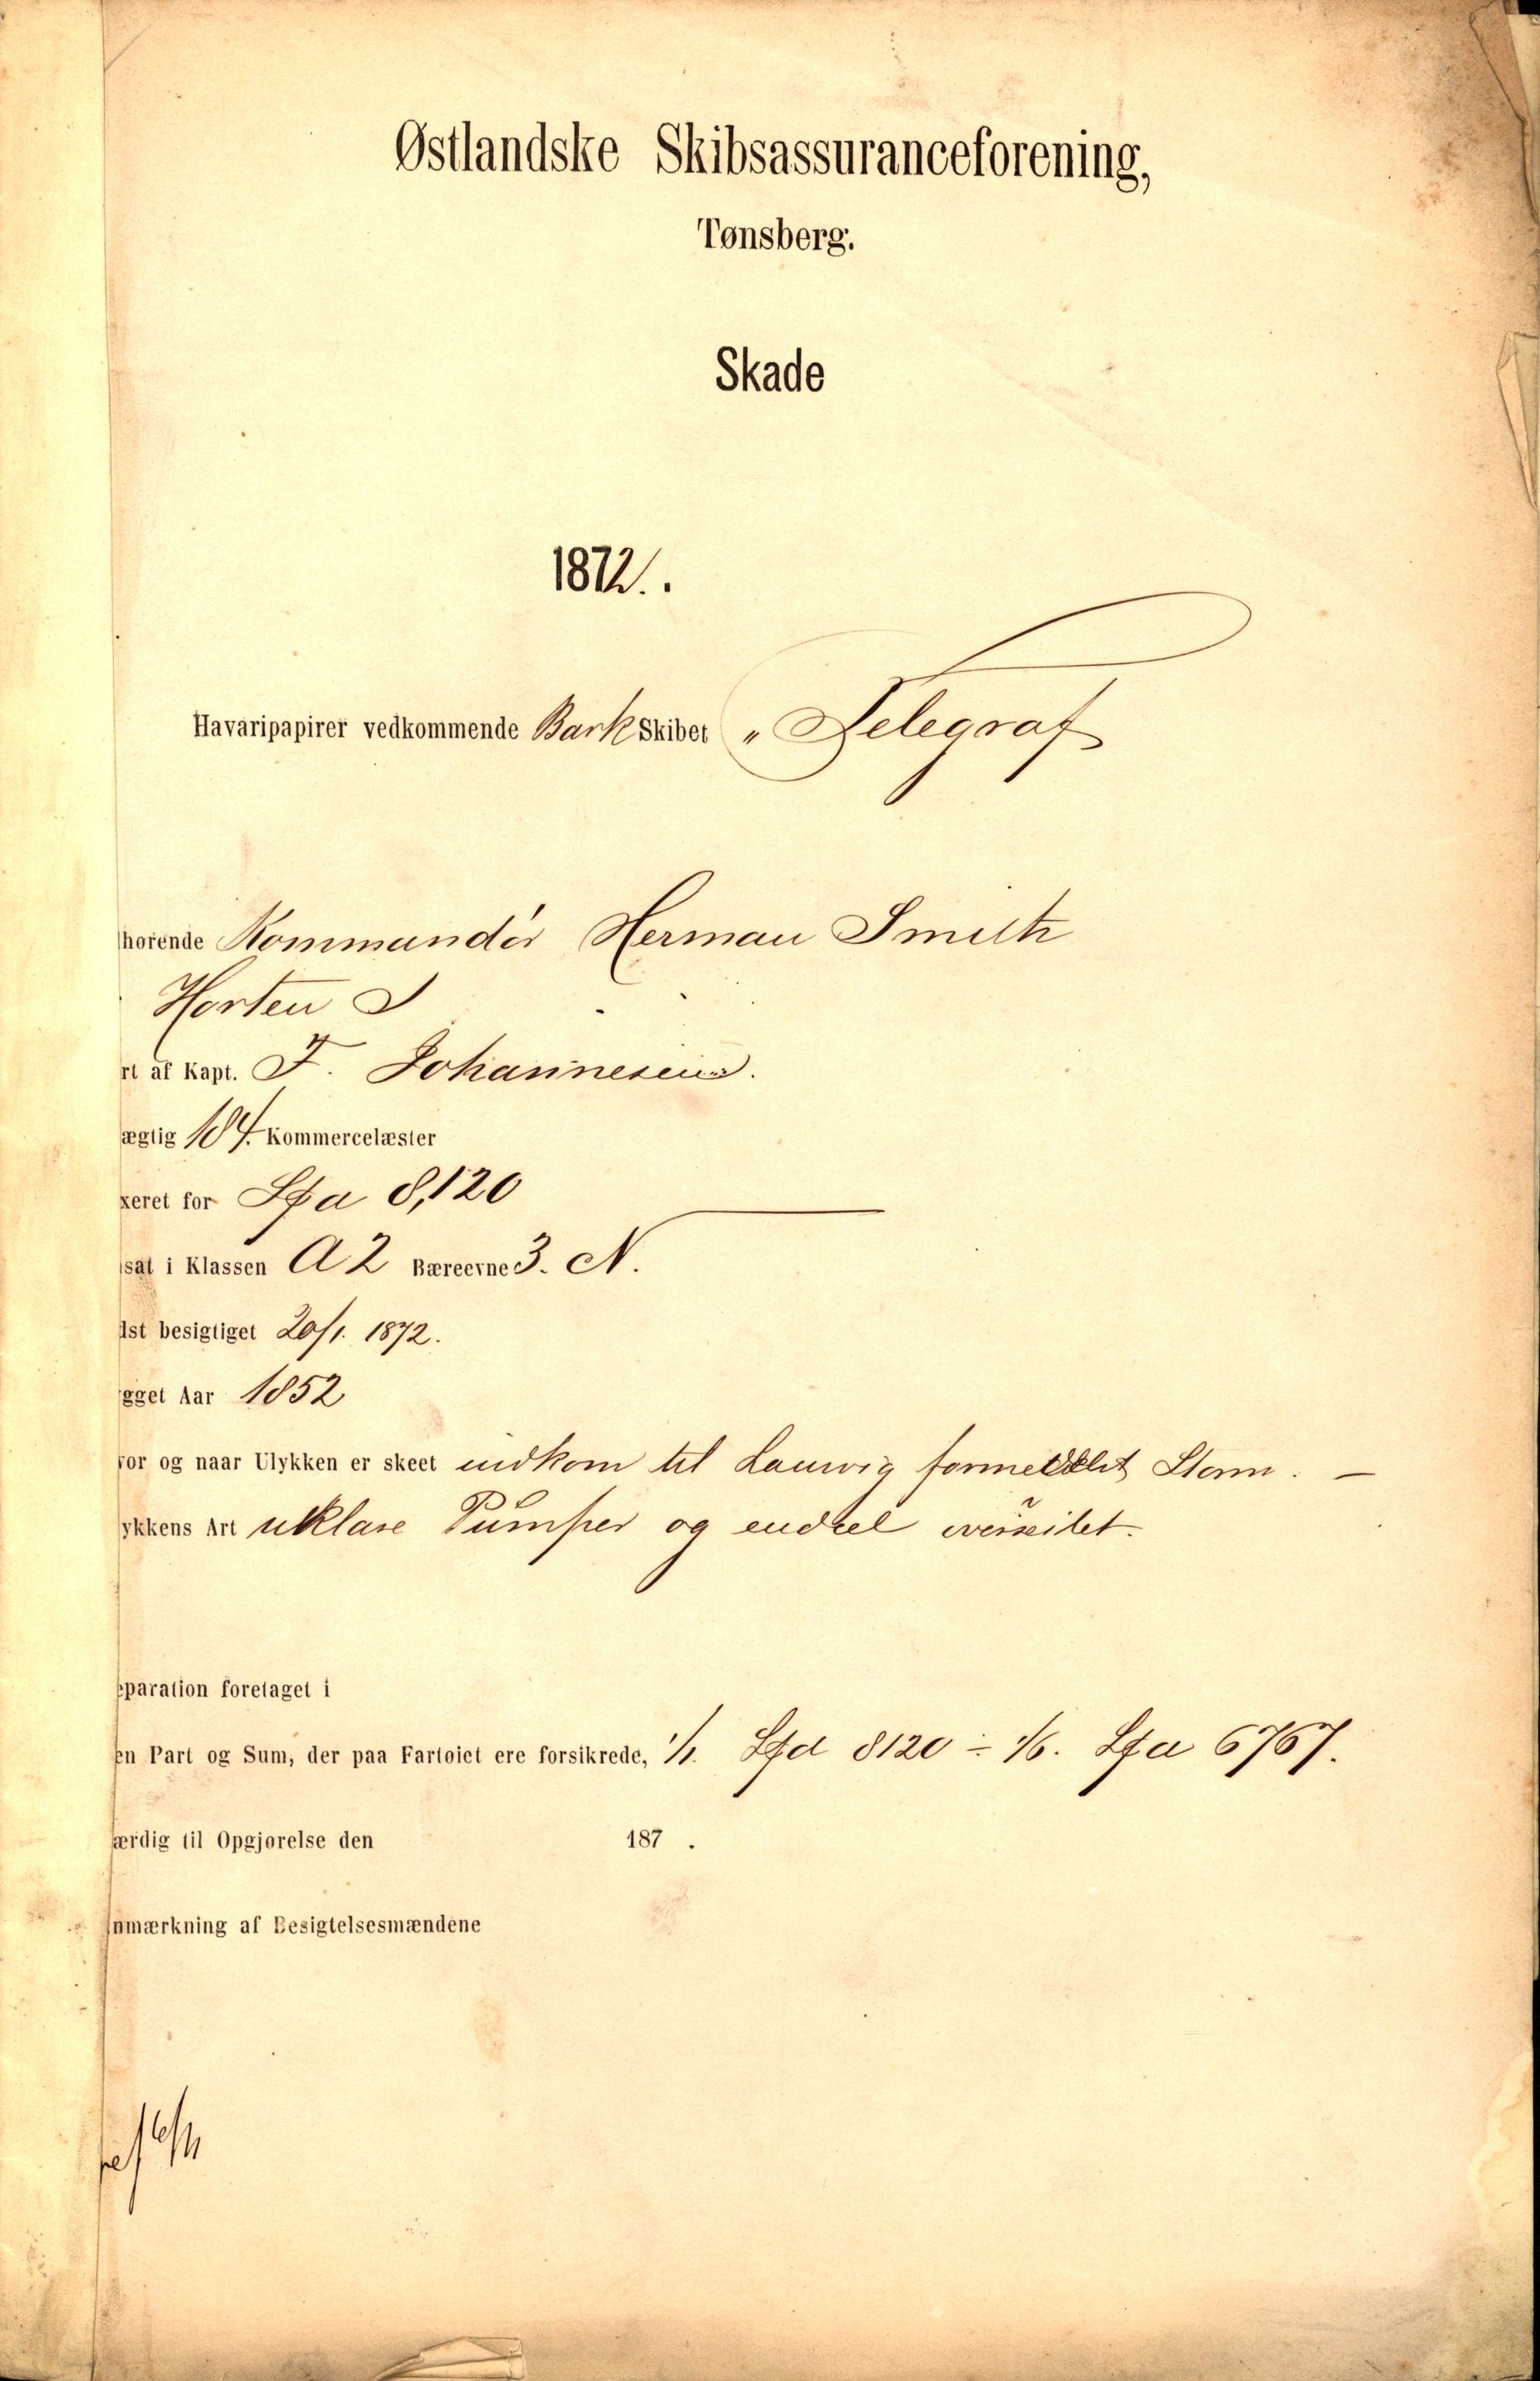 Østlandske Skibsassuranceforening,
Tønsberg.
Skade
1872.
Havaripapirer vedkommende Bark Skibet „Telegraf
hørende Kommandör Herman Smith
Horten
rt af Kapt. F. Johannesen.
ægtig 184. Kommercelæster
xeret for Spd 8,120
sat i Klassen A2 Bæreevne 3. N.
dst besigtiget 20/1. 1872.
gget Aar 1852
vor og naar Ulykken er skeet indkom til Laurvig formedelst Storm. —
ykkens Art uklare Pumper og endeel overseilet.
eparation foretaget i
en Part og Sum, der paa Fartøiet ere forsikrede, 1/1. Spd 8120 ÷ 1/6. Spd 6767.
ærdig til Opgjørelse den 187 .
nmærkning af Besigtelsesmændene